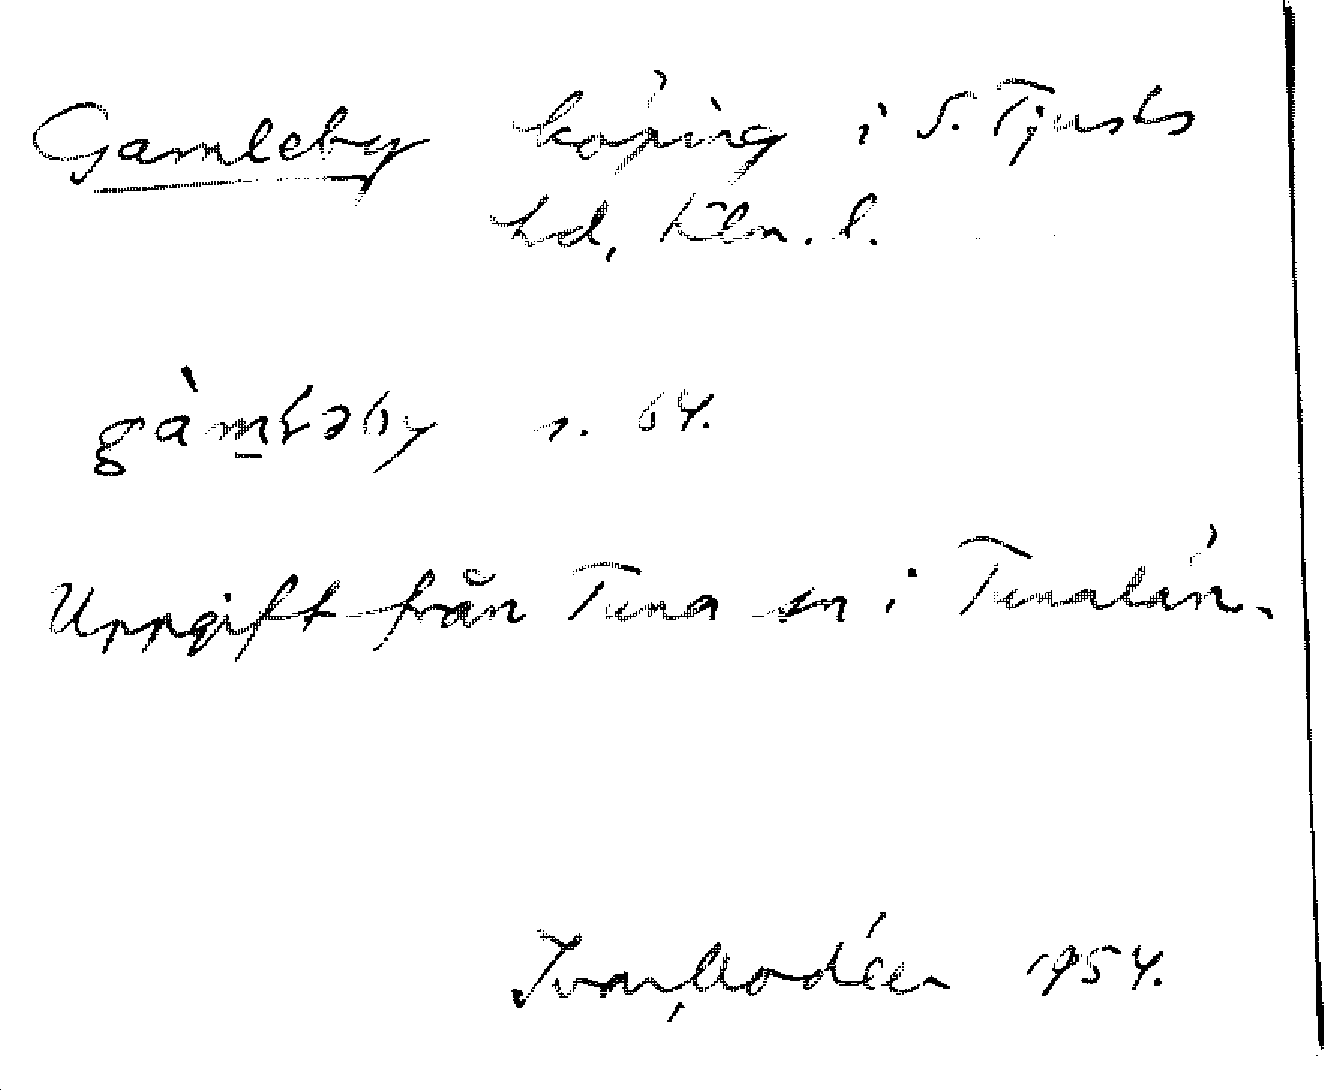 Gamleby köping i S. Tjusts
hd, Klm. l.
gàm̱ləby s. 64.
Uppgift från Tuna sn i Tunalän.
Ivar Modéer 1954.